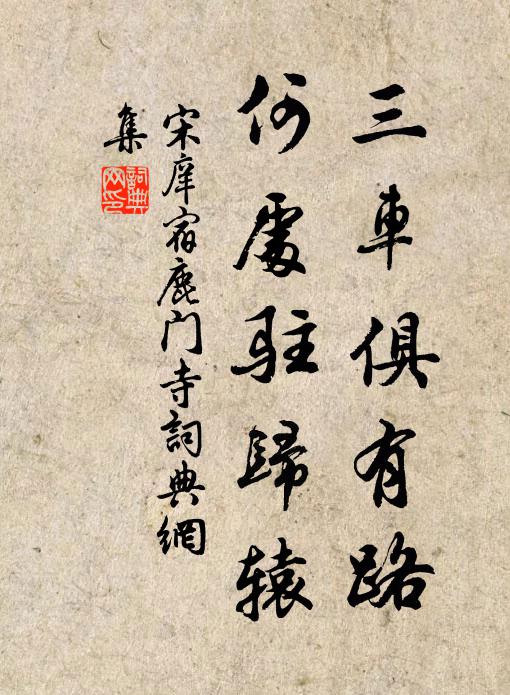 三車俱有路
何處駐歸辕
宋庠宿鹿門寺詞典網
集
詞典
网印